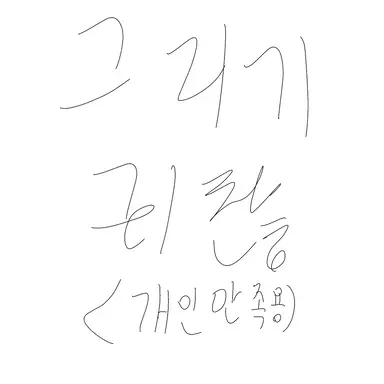 그리기
귀찮음
(개인만족용)